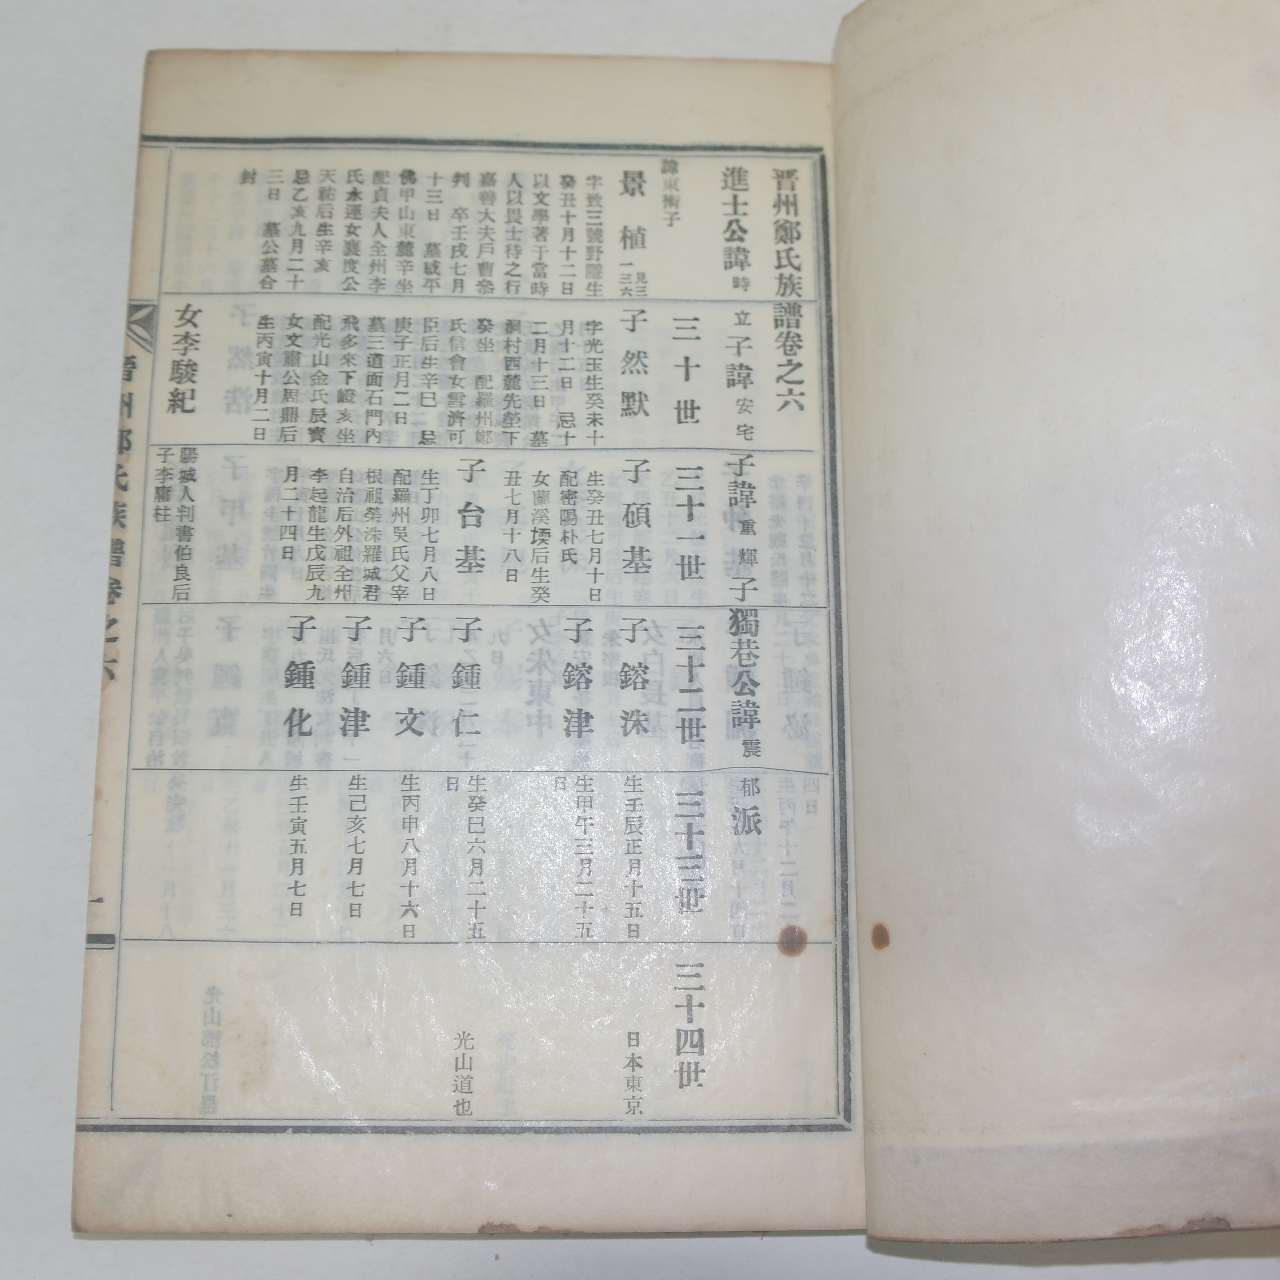 晋州鄭氏族譜卷之六
進士公諱時立子諱安宅子諱重輝子獨巷公諱震郁派
三十世
三十一世
三十二世
三十三世
三十四世
諱東衡子
景植 見三一三六
字致三號野隱生
癸丑十月十二日
以文學著于當時
人以畏士待之行
嘉善大夫戶曹參
判 卒壬戌七月
十三日 墓咸平
佛甲山東麓辛坐
配貞夫人全州李
氏永運女襄度公
天祐后生辛亥
忌乙亥九月二十
三日 墓公墓合
封
子然默
字光玉生癸未十
月十二日 忌十
二月十三日 墓
洞村西麓先塋下
癸坐 配羅州鄭
氏信會女雪濟可
臣后生辛巳 忌
庚子正月二日
墓三道面石門內
飛多來下嶝亥坐
配光山金氏辰賓
女文肅公周鼎后
生丙寅十月二日
女李駿紀
陽城人判書伯良后
子李庸柱
子碩基
生癸丑七月十日
配密陽朴氏
女蘭溪堧后生癸
丑七月十八日
子台基
生丁卯七月八日
配羅州吳氏父宰
根祖榮洙羅城君
自治后外祖全州
李起龍生戊辰九
月二十四日
子鎔洙
生壬辰正月十五日
日本東京
子鎔津
生甲午三月二十五
日
子鍾仁
生癸巳六月二十五
日
光山道也
子鍾文
生丙申八月十六日
子鍾津
生己亥七月七日
子鍾化
生壬寅五月七日
晋州鄭氏族譜卷之六
一